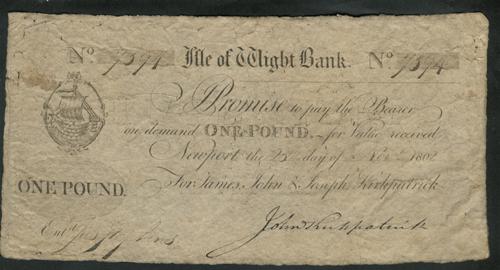 No. 7394 Isle of Wight Bank. No. 7394
I Promise to pay the Bearer
on demand ONE POUND. for Value received
Newport the day of Nov. 1802
ONE POUND. For James, John & Joseph Kirkpatrick
John Kirkpatrick
Entd.